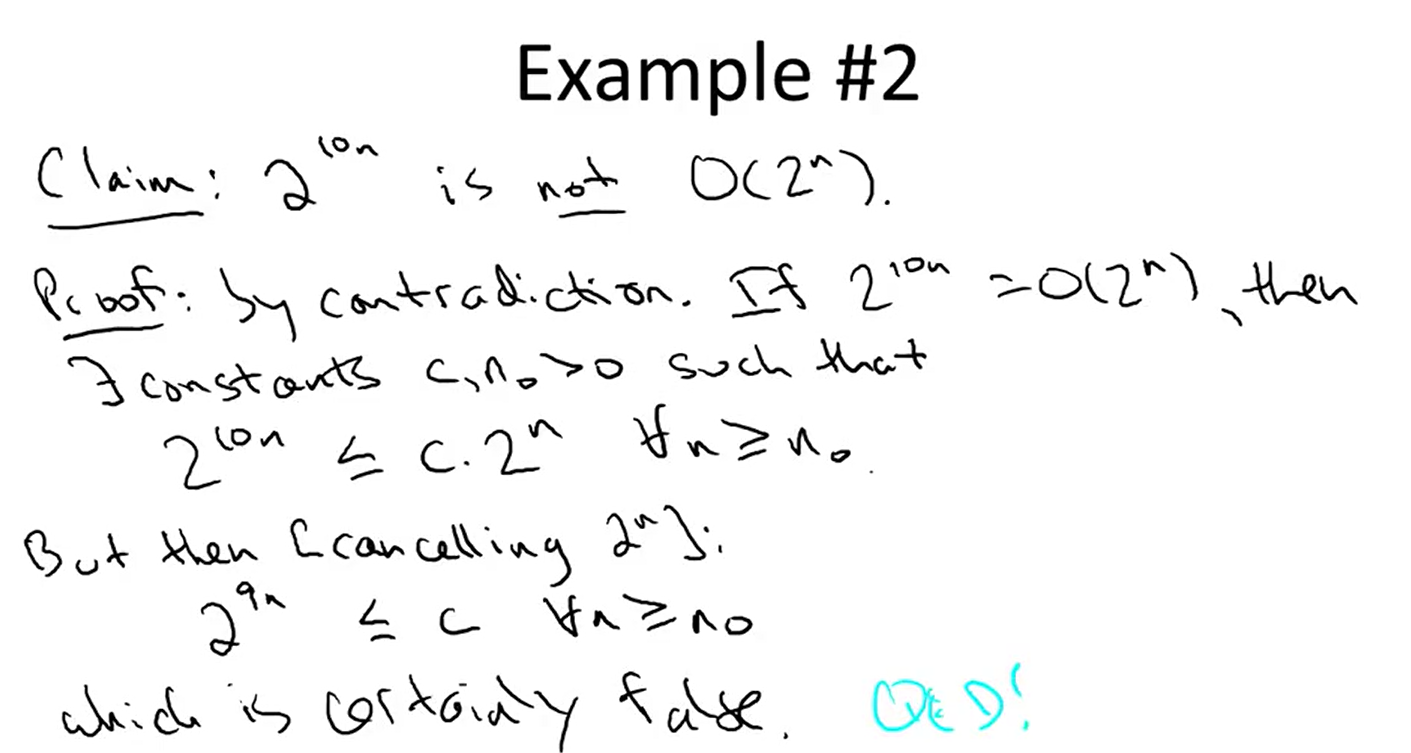 Example #2
Claim: 2^{10n} is not O(2^n).
Proof: by contradiction. If 2^{10n} = O(2^n), then
∃ constants c, n₀ > 0 such that
2^{10n} ≤ c·2^n ∀n ≥ n₀.
But then [cancelling 2^n]:
2^{9n} ≤ c ∀n ≥ n₀
which is certainly false. QED!